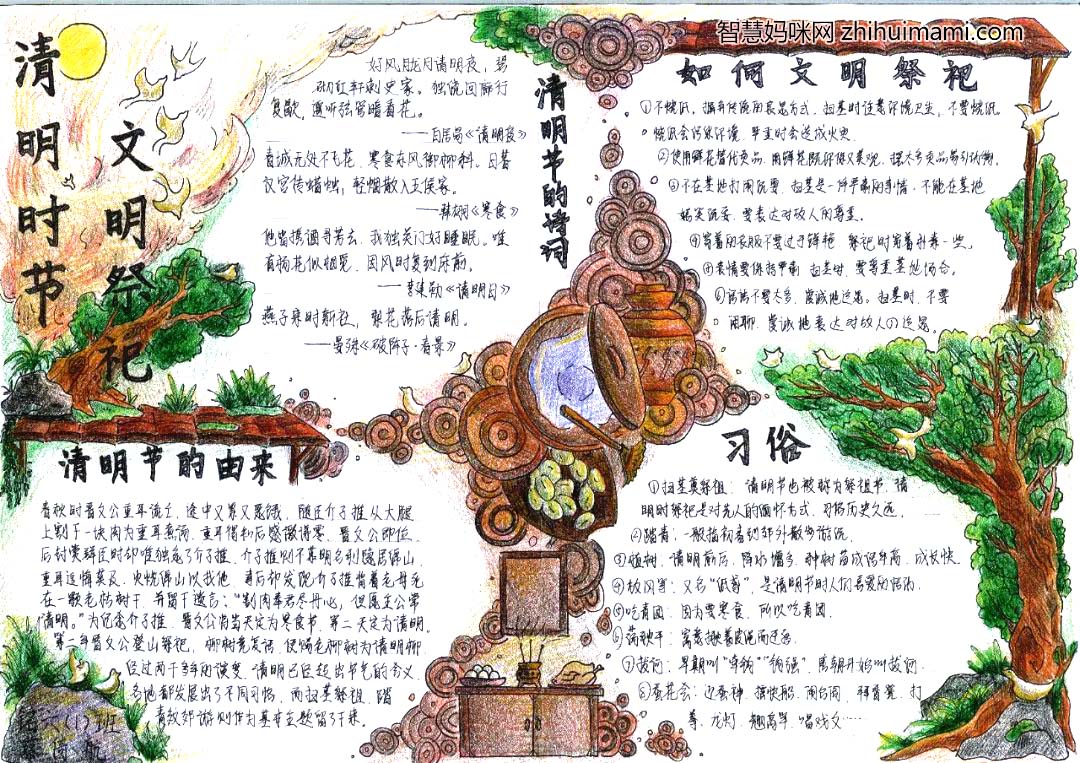 智慧妈咪网 zhihuimami.com
清明时节
文明祭祀
清明节的诗词
好风胧月清明夜，碧
砌红轩刺史家。独绕回廊行
复歇，遥听弦管暗看花。
——白居易《清明夜》
春城无处不飞花，寒食东风御柳斜。日暮
汉宫传蜡烛，轻烟散入五侯家。
——韩翃《寒食》
他皆携酒寻芳去，我独关门好静眠。唯
有杨花似相觅，因风时复到床前。
——李建勋《清明日》
燕子来时新社，梨花落后清明。
——晏殊《破阵子·春景》
如何文明祭祀
①不烧纸，摒弃传统的表思方式，扫墓时注意环境卫生，不要烧纸。
烧纸会污染环境，严重时会造成火灾。
②使用鲜花替代贡品，用鲜花既环保又美观，
③不在墓地打闹玩耍，扫墓是一件严肃的事情，不能在墓地
嬉笑玩耍，要表达对故人的尊重。
④穿着的衣服不要过于鲜艳，祭祀时穿着朴素一些。
⑤表情要保持严肃，扫墓时，要尊重墓地场合。
⑥话语不要太多，虔诚地追思。扫墓时，不要
闲聊，虔诚地表达对故人的追思。
清明节的由来
春秋时晋文公重耳流亡，途中又累又恶饿，随臣介子推从大腿
上割下一块肉为重耳煮汤，重耳得知后感激得哭，晋文公即位
后封赏群臣时却唯独忘了介子推，介子推则不慕明名利隐居绵山，
重耳追悔莫及，火烧绵山以找他，事后却发现介子推背着老母死
在一颗老柳树下，并留下遗言：“割肉奉君尽丹心，但愿主公常
清明。”为纪念介子推，晋文公将当天定为寒食节，第二天定为清明。
第二年晋文公登山祭祀，柳树竟复活，便赐老柳树为清明柳
经过两千多年的演变，清明已经超出节气的含义，
各地都发展出了不同习俗，而扫墓祭祖，踏
青郊游则作为基本主题留了下来。
习俗
①扫墓莫祭祖：清明节也被称为祭祖节，清
明时祭祀是对先人的缅怀方式，习俗历史久远。
②踏青：一般指初春到郊外散步游玩。
③植树：清明前后，降水增多，种树苗成活率高，成长快。
④放风筝：又名“纸鸢”，是清明节时人们喜爱的活动。
⑤吃青团：因为要寒食，所以吃青团。
⑥荡秋千：寓意揪着皮绳而迁移。
⑦拔河：早期叫“牵钩”“钩强”，唐朝开始叫拔河。
⑧蚕花会：迎蚕神，摇快船，闹台阁，拜香凳，打
拳，龙灯，翘高竿，唱戏文……